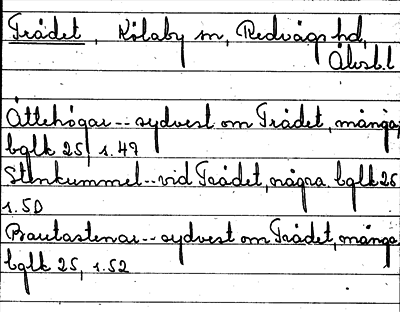 Trädet, Kölaby sn, Redvägs hd,
Älvsb.l
Ättehögar -- sydvest om Trädet, många,
bglk 25, s.49
Stenkummel -- vid Trädet, några. bglk 25
s.50
Bautastenar -- sydvest om Trädet, många
bglk 25, s.52